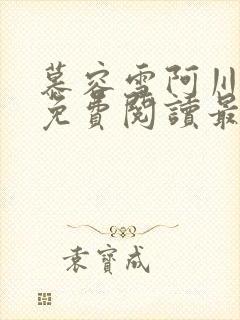 慕容雪阿川
免費閱讀最
袁寶成